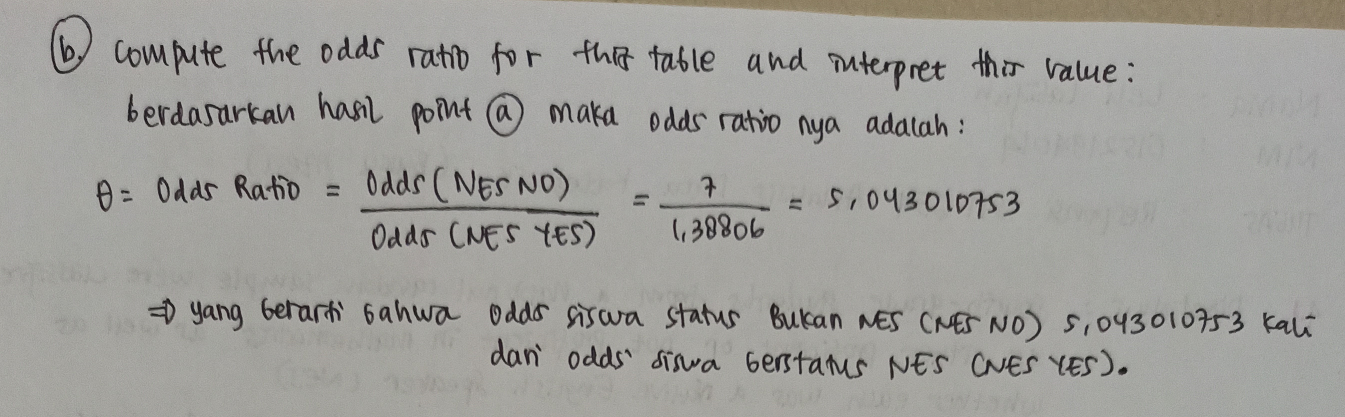 (b) Compute the odds ratio for this table and interpret this value:
berdasarkan hasil point (a) maka odds ratio nya adalah:
θ = Odds Ratio = Odds (NES NO) / Odds (NES YES) = 7 / 1,38806 = 5,043010753
⇒ yang berarti bahwa odds siswa status Bukan NES (NES NO) 5,043010753 kali
dari odds siswa berstatus NES (NES YES).